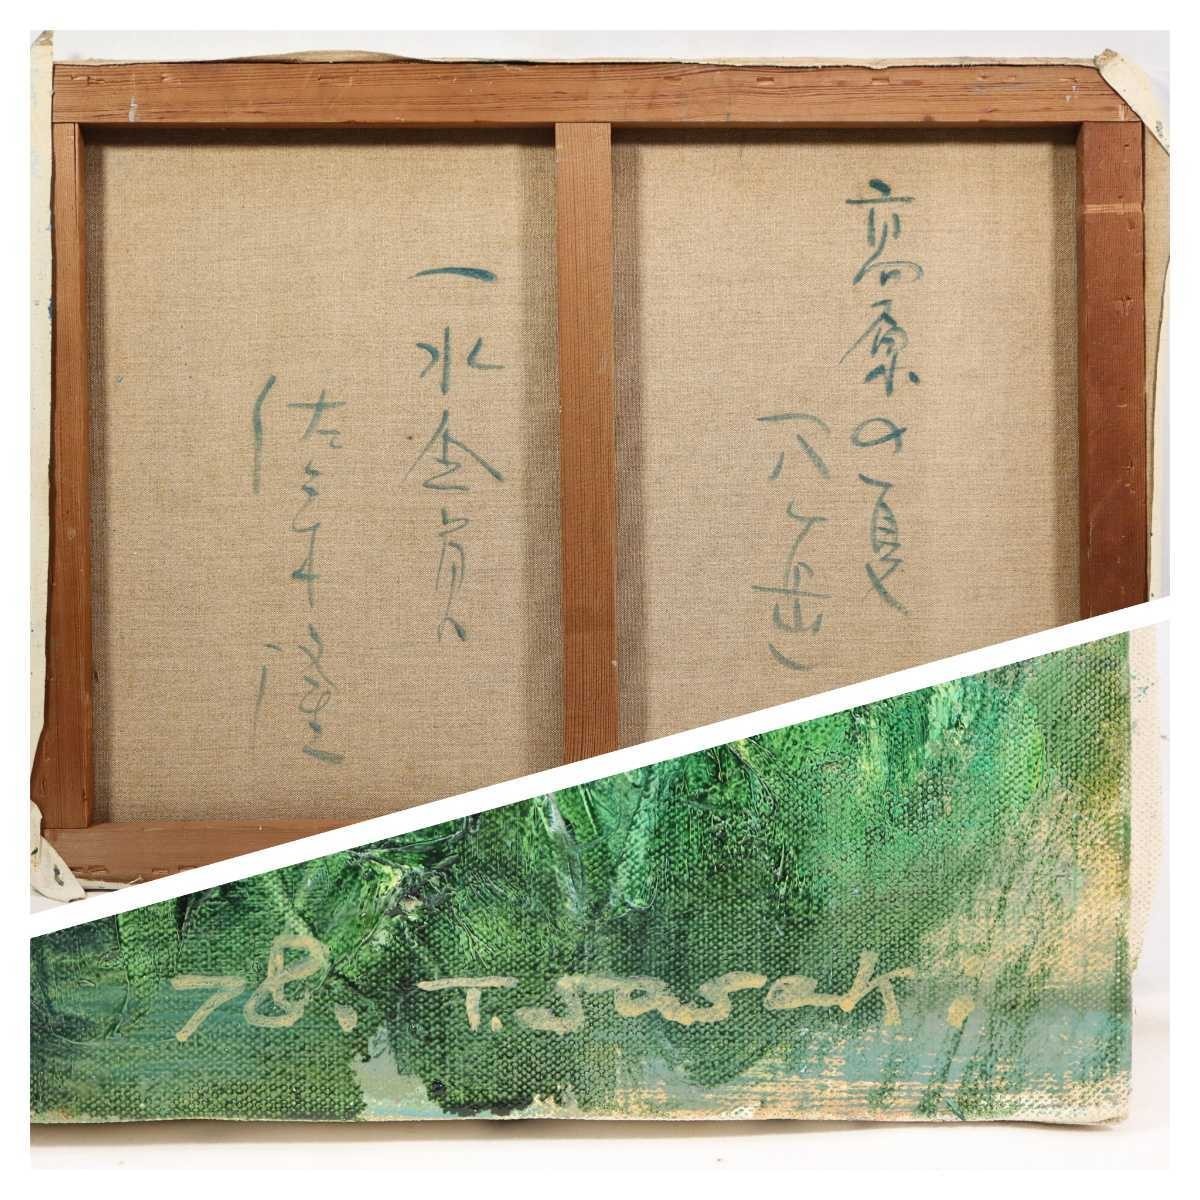 高原の夏
(八ヶ岳)
一水会員
佐々木隆
78. T. Sasaki.